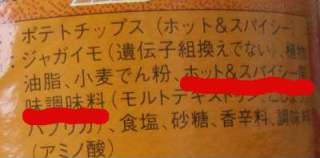 ポテトチップス（ホット&スパイシー
ジャガイモ（遺伝子組換えでない）、植物
油脂、小麦でん粉、ホット&スパイシー風
味調味料（モルトデキストリン、こしょう
パプリカ）、食塩、砂糖、香辛料、調味料
（アミノ酸）